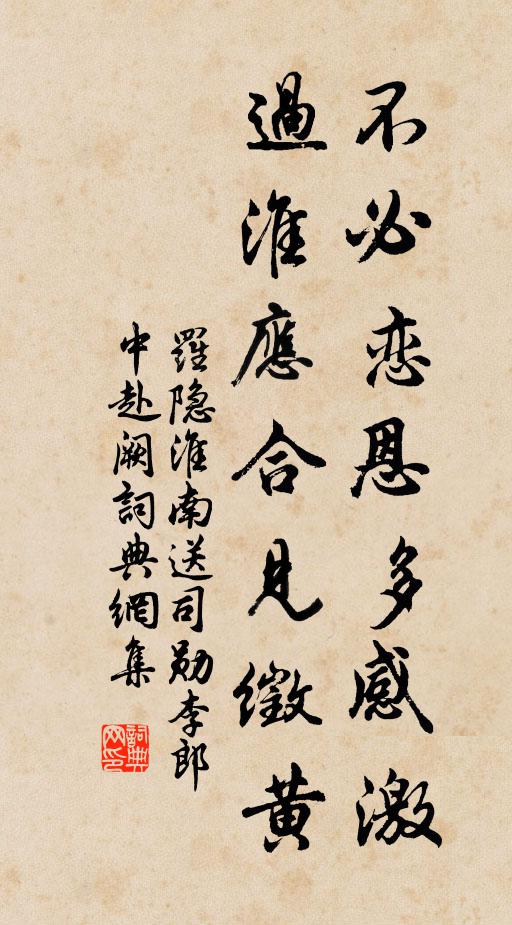 不必恋恩多感激
過淮應合見徵黄
羅隐淮南送司勛李郎
中赴阙詞典網集
詞典网印